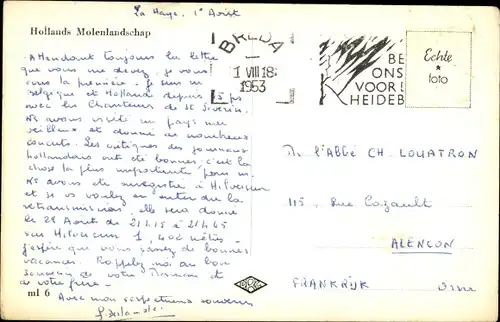 La Haye, 1° Août
Hollands Molenlandschap
Attendant toujours la lettre
que vous me devez, je vous
la première. je suis en
Belgique et Hollande depuis 15 js
avec les Chanteurs de St Séverin.
Ns avons visité un pays mer
veilleux et donné de nombreux
concerts. Les critiques des journaux
Hollandais ont été bonnes, c'est la
chose la plus importante pour ns.
Ns avons été enregistré à Hilversum
et si vous voulez en entendre la
retransmission, elle sera donnée
le 28 Août de 21.15 à 21.45
sur Hilversum 1, 402 mètres.
J'espère que vous passez de bonnes
vacances. Rappelez moi au bon
souvenir de votre Maman et
de votre frère.
Avec mon respectueux souvenir
ml 6
BREDA
1 VIII 18
1953
BE
ONS
VOOR
HEIDEB
Echte
foto
Mr l'Abbé CH. LOUATRON
115, Rue Cazault
ALENÇON
FRANKRIJK Orne